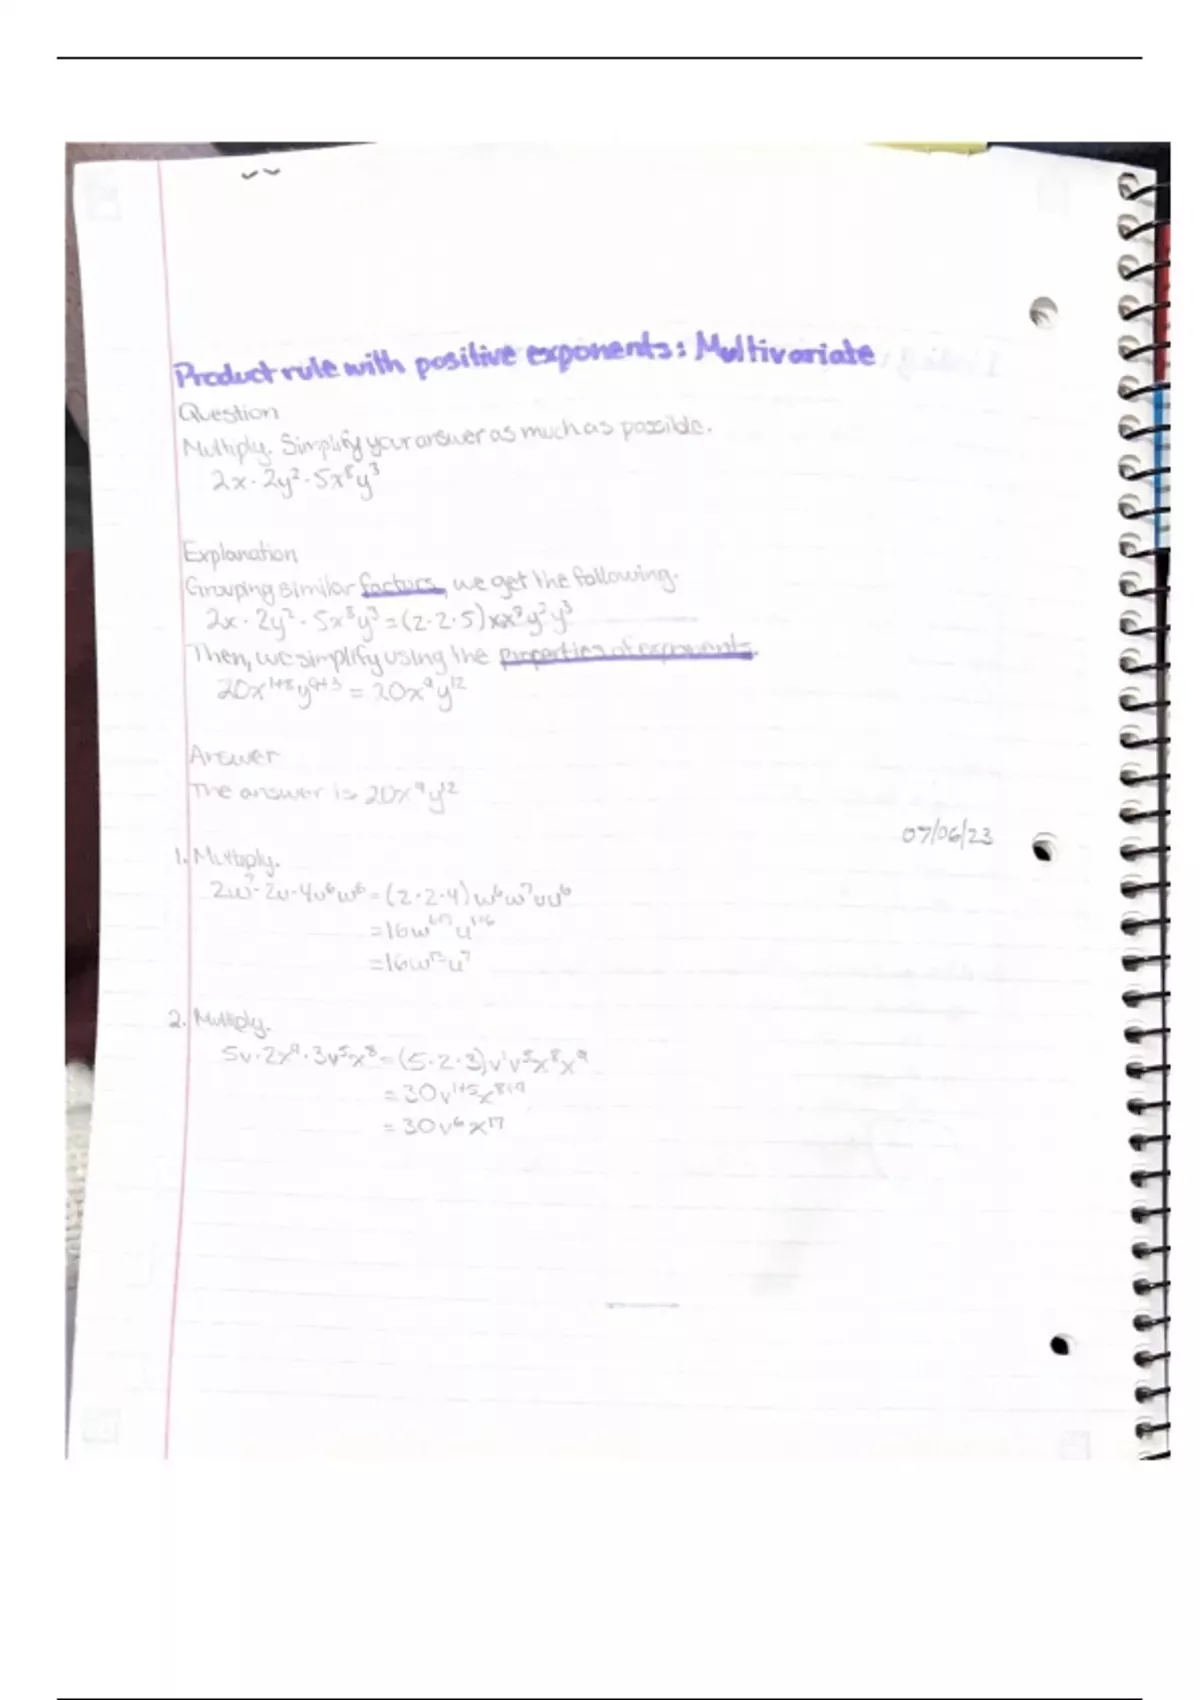 Product rule with positive exponents: Multivariate
Question
Multiply. Simplify your answer as much as possible.
2x · 2y² · 5x⁸y³
Explanation
Grouping similar factors, we get the following.
2x · 2y² · 5x⁸y³ = (2·2·5)xx⁸y²y³
Then, we simplify using the properties of exponents.
20x¹⁺⁸y⁹⁺³ = 20x⁹y¹²
Answer
The answer is 20x⁹y¹²
07/06/23
1. Multiply.
2w⁷·2u·4u⁶w⁶ = (2·2·4)w⁶w⁷uu⁶
=16w⁶⁺⁷u¹⁺⁶
=16w¹³u⁷
2. Multiply.
5v·2x⁹·3v⁵x⁸ = (5·2·3)v¹v⁵x⁸x⁹
= 30v¹⁺⁵x⁸⁺⁹
= 30v⁶x¹⁷